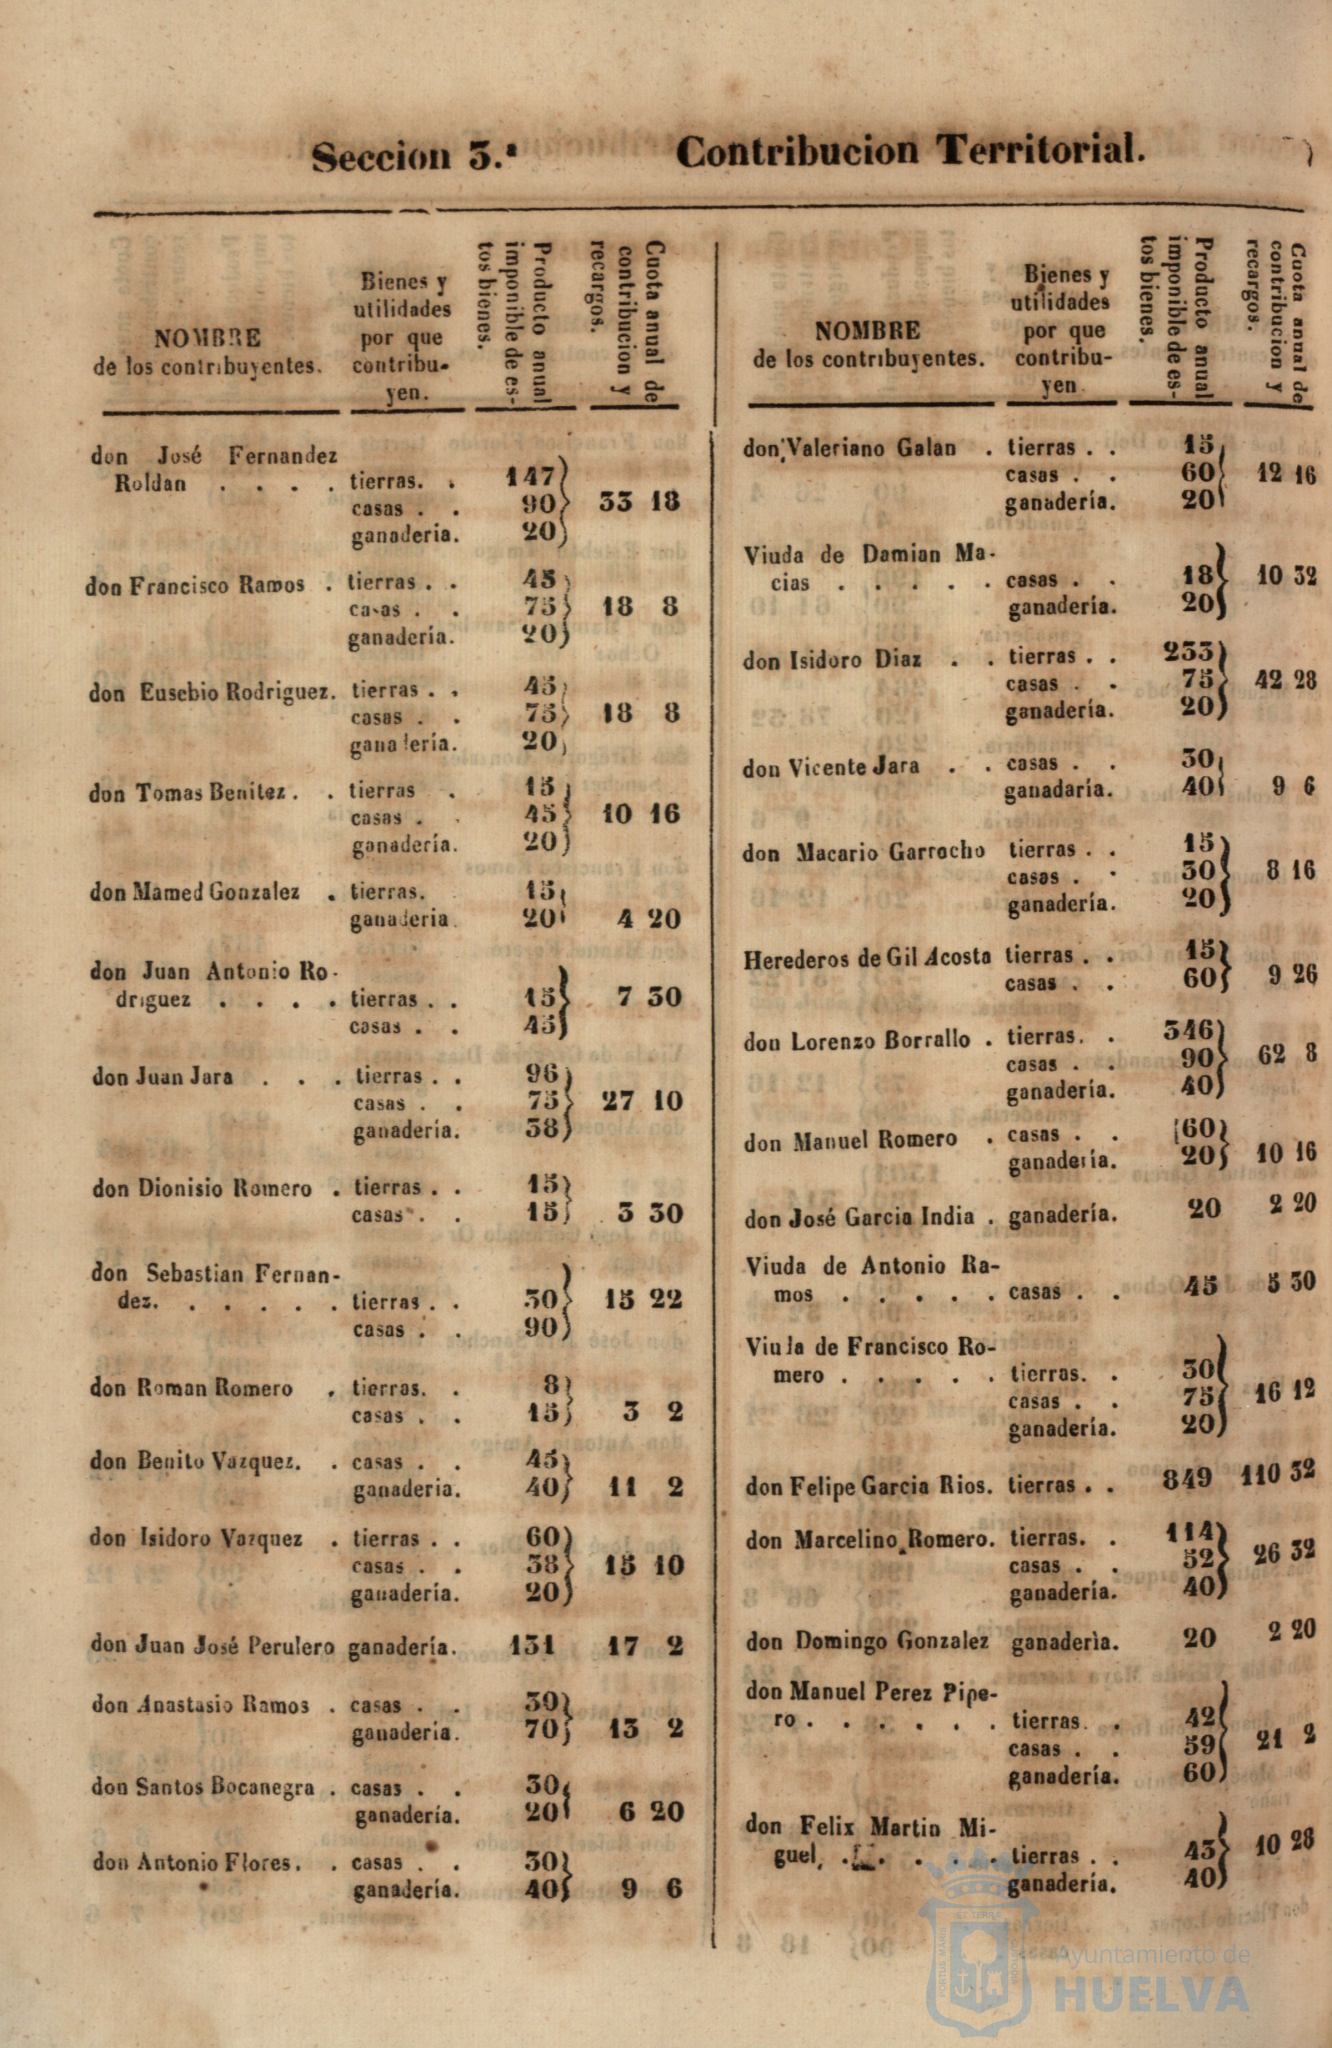 Seccion 3.ª Contribucion Territorial.
NOMBRE
de los contribuyentes.
Bienes y
utilidades
por que
contribu-
yen.
Producto anual
imponible de es-
tos bienes.
Cuota anual de
contribucion y
recargos.
don José Fernandez
Roldan . . . . tierras. . 147
casas . . 90 33 18
ganaderia. 20
don Francisco Ramos . tierras . . 45
casas . . 75 18 8
ganadería. 20
don Eusebio Rodriguez. tierras . . 45
casas . . 75 18 8
ganadería. 20
don Tomas Benitez . . tierras . 15
casas . . 45 10 16
ganadería. 20
don Mamed Gonzalez . tierras. 15
ganaderia. 20 4 20
don Juan Antonio Ro-
driguez . . . . tierras . . 15 7 30
casas . . 45
don Juan Jara . . . tierras . . 96
casas . . 75 27 10
ganadería. 38
don Dionisio Romero . tierras . . 15
casas . . 15 3 30
don Sebastian Fernan-
dez. . . . . . tierras . . 30 15 22
casas . . 90
don Roman Romero . tierras. . 8
casas . . 15 3 2
don Benito Vazquez. . casas . . 45
ganaderia. 40 11 2
don Isidoro Vazquez . tierras . . 60
casas . . 38 15 10
ganadería. 20
don Juan José Perulero ganadería. 131 17 2
don Anastasio Ramos . casas . . 30
ganadería. 70 13 2
don Santos Bocanegra . casas . . 30
ganadería. 20 6 20
don Antonio Flores. . casas . . 30
ganadería. 40 9 6
NOMBRE
de los contribuyentes.
Bienes y
utilidades
por que
contribu-
yen
Producto anual
imponible de es-
tos bienes.
Cuota anual de
contribucion y
recargos.
don Valeriano Galan . tierras . . 15
casas . . 60 12 16
ganadería. 20
Viuda de Damian Ma-
cias . . . . . casas . . 18 10 32
ganadería. 20
don Isidoro Diaz . . tierras . . 233
casas . . 75 42 28
ganadería. 20
don Vicente Jara . . casas . . 30
ganadaría. 40 9 6
don Macario Garrocho tierras . . 15
casas . . 30 8 16
ganadería. 20
Herederos de Gil Acosta tierras . . 15
casas . . 60 9 26
don Lorenzo Borrallo . tierras. . 346
casas . . 90 62 8
ganadería. 40
don Manuel Romero . casas . . 60
ganadería. 20 10 16
don José Garcia India . ganadería. 20 2 20
Viuda de Antonio Ra-
mos . . . . . casas . . 45 5 30
Viuda de Francisco Ro-
mero . . . . . tierras. . 30
casas . . 75 16 12
ganadería. 20
don Felipe Garcia Rios. tierras . . 849 110 32
don Marcelino Romero. tierras. . 114
casas . . 52 26 32
ganadería. 40
don Domingo Gonzalez ganadería. 20 2 20
don Manuel Perez Pipe-
ro . . . . . . tierras. . 42
casas . . 59 21 2
ganadería. 60
don Felix Martin Mi-
guel, . . . . . tierras . . 43 10 28
ganadería. 40
Ayuntamiento de
HUELVA